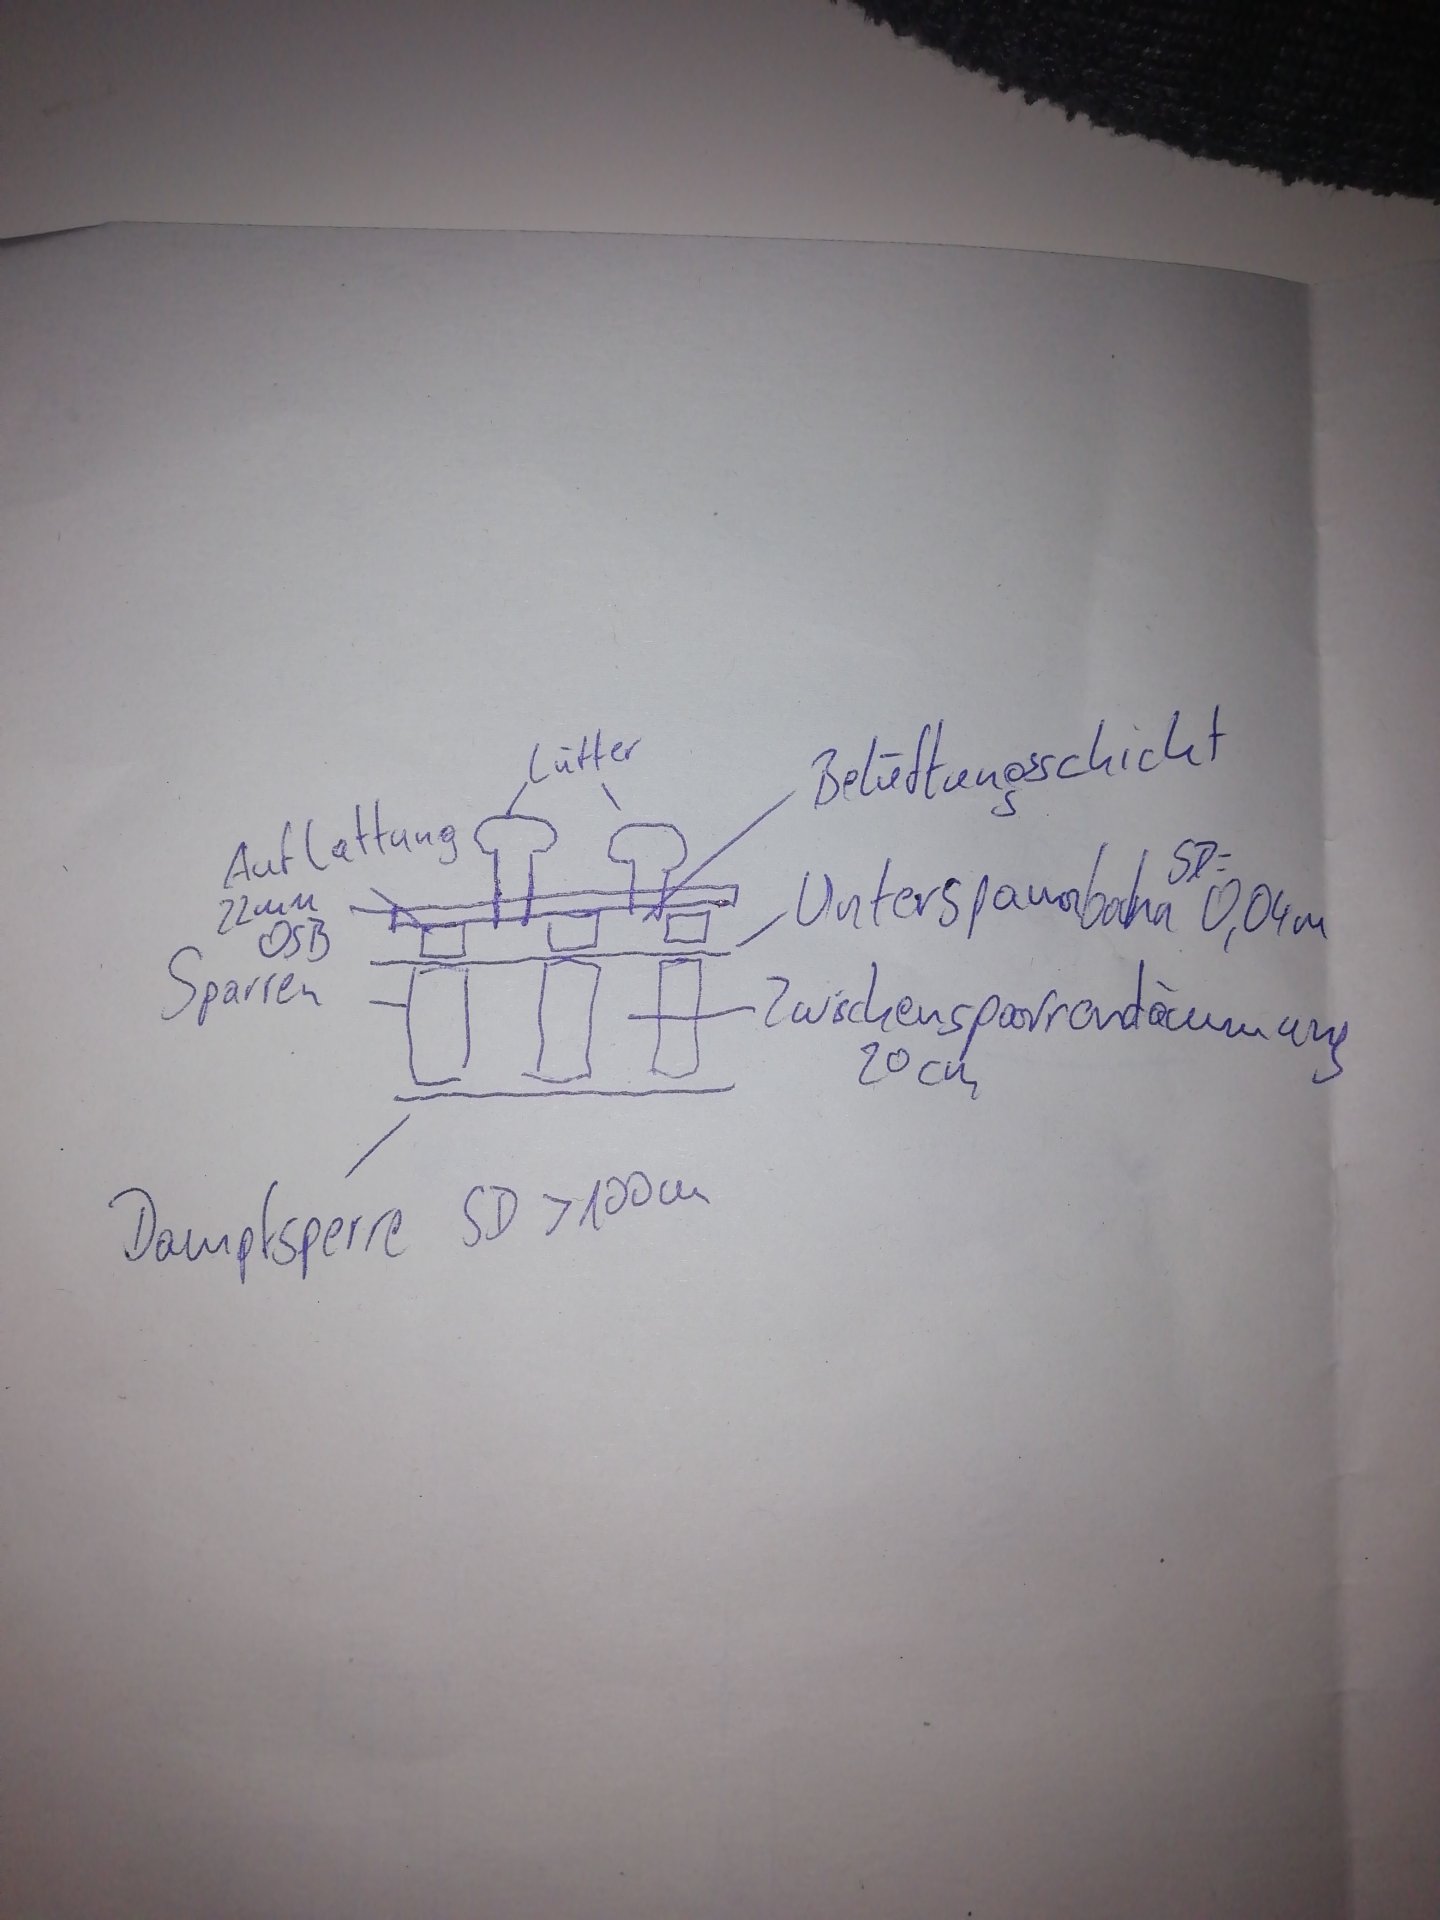 Lüfter
Belüftungsschicht
Auflattung
22mm
OSB
SD=
Unterspannbahn 0,04m
Sparren
Zwischensparrendämmung
20cm
Dampfsperre SD >100m